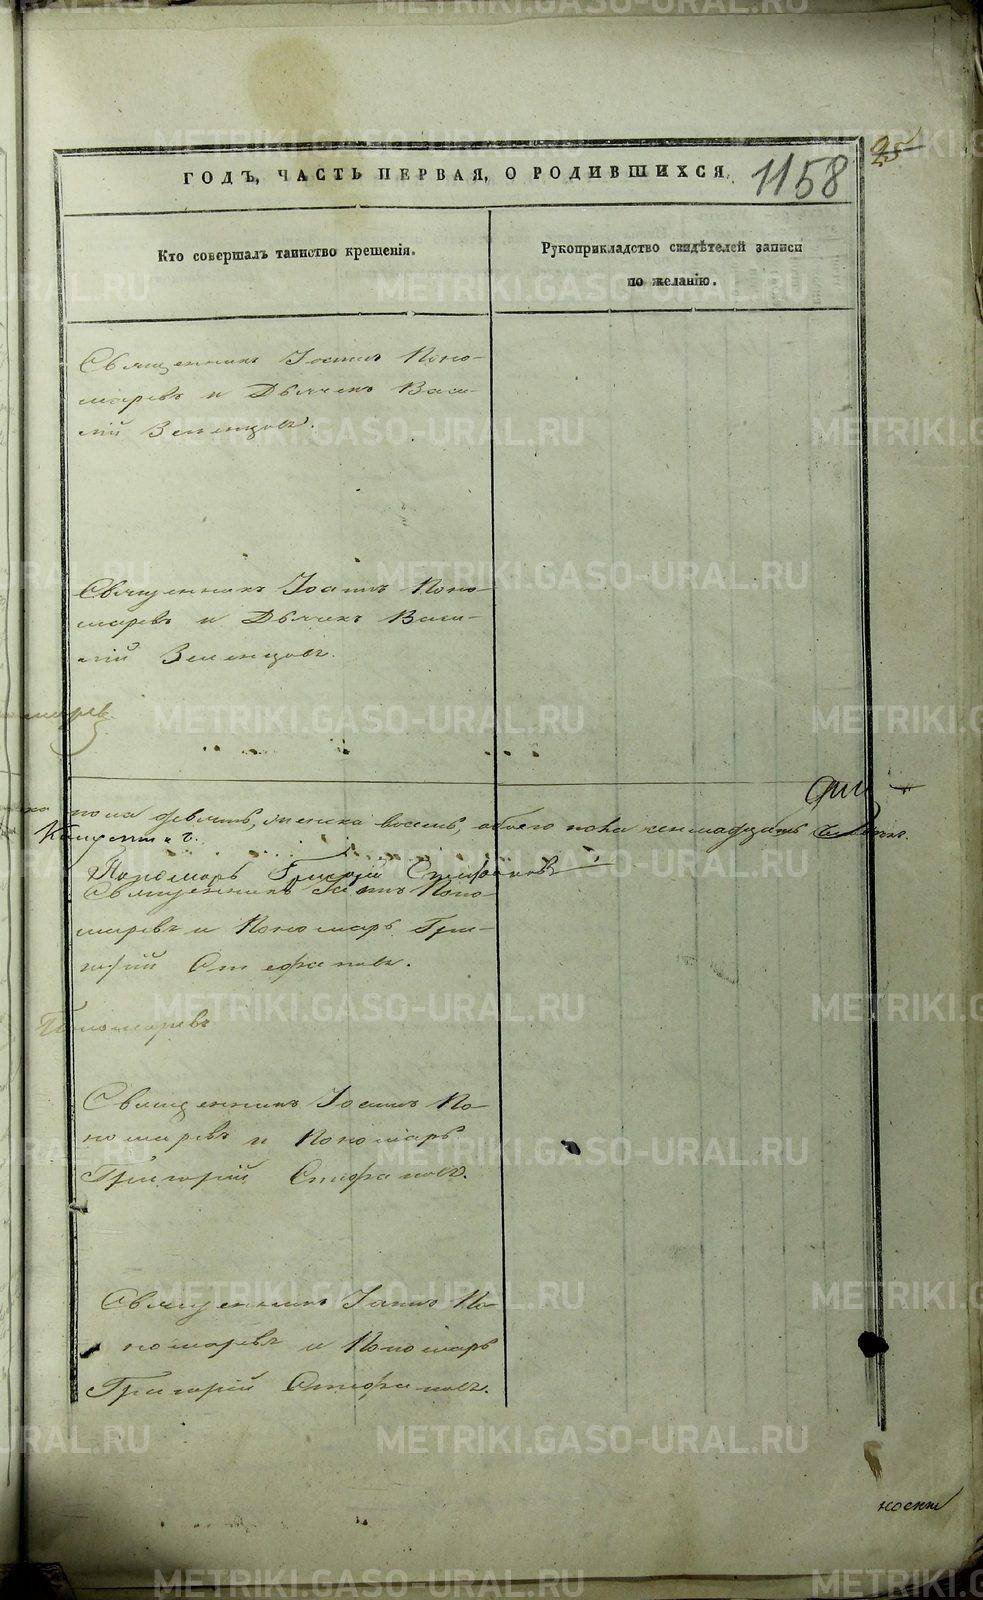 25
ГОДЪ, ЧАСТЬ ПЕРВАЯ, О РОДИВШИХСЯ.
1158
Кто совершалъ таинство крещенія.
Рукоприкладство свидѣтелей записи
по желанію.
Священникъ Іоаннъ Поно-
маревъ и Дьячекъ Васи-
лій Зеленцовъ.
Священникъ Іоаннъ Поно-
маревъ и Дьячекъ Васи-
лій Зеленцовъ.
марев
пола девять, женска восемь, обоего пола семнадцать
Пономарь Григорій Стефановъ
Священникъ Іоаннъ Поно-
маревъ и Пономарь Гри-
горій Стефановъ.
Пономаревъ
Священникъ Іоаннъ По-
номаревъ и Пономарь
Григорій Стефановъ.
Священникъ Іоаннъ По-
номаревъ и Пономарь
Григорій Стефановъ.
METRIKI.GASO-URAL.RU